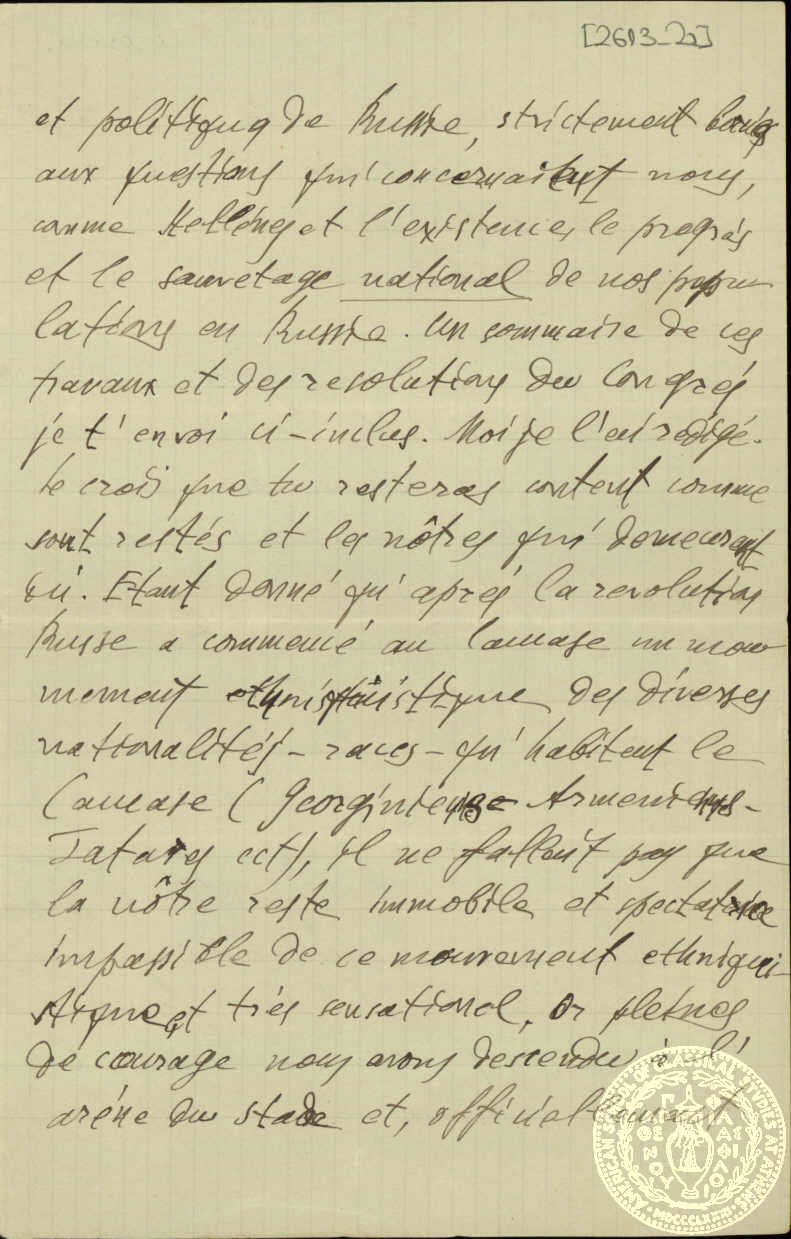 [2613_2a]
et politique de Russie, strictement
aux questions qui concernaient nous,
comme Hellénes et l'existence, le progrés
et le sauvetage national de nos popu
lations en Russie. Un sommaire de ces
travaux et des resolutions du Congrés
je t'envoi ci-inclus. Moi je l'ai redigé.
Je crois que tu resteras content comme
sont restés et les nôtres qui demeurent
ici. Etant donné qu'aprés la revolution
Russe a commencé au Caucase un mou
mement des diverses
nationalités - races - qu'habitent le
Caucase (Georginiens - Armeniens -
Tatares ect), il ne fallait pas que
la nôtre reste immobile et spectatrice
impassible de ce mouvement ethniqui-
stique et trés sensational. Or pleines
de courage nous avons descendu à l'
aréne du stade et, officiellement
AMERICAN SCHOOL OF CLASSICAL STUDIES AT ATHENS
ΠΑΡΘΕΝΟΥ ΦΙΛΑΣ
MDCCCLXXXI